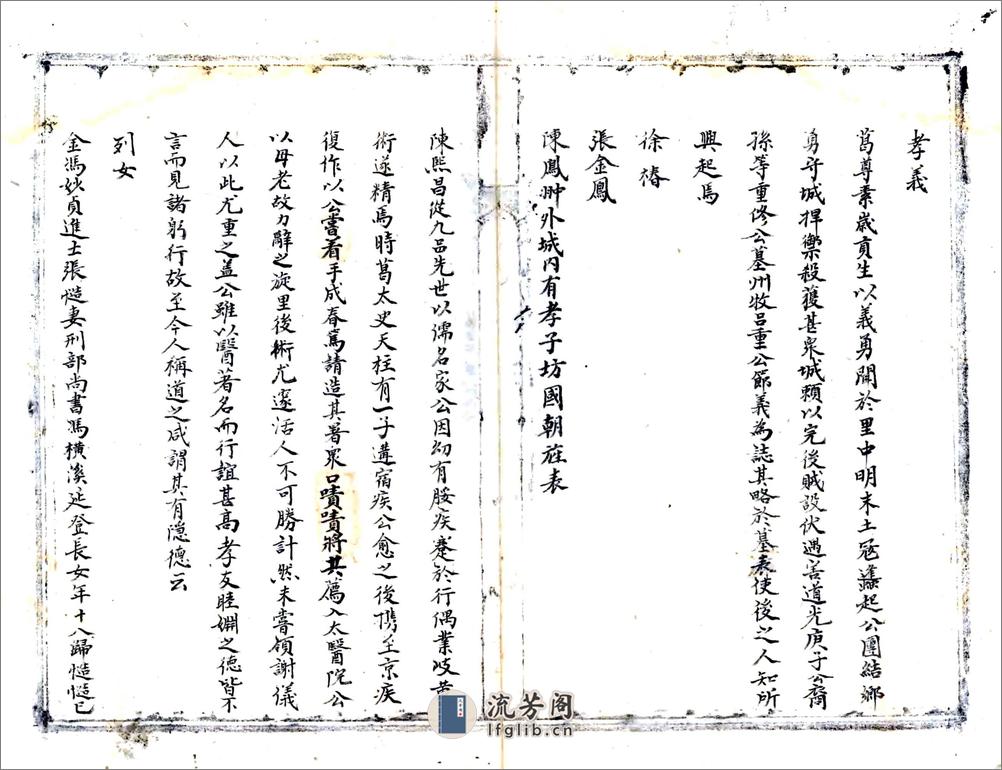 孝義
葛尊素歲貢生以義勇聞於里中明末土寇蠭起公團結鄉
勇守城捍禦殺獲甚眾城頼以完後賊設伏遇害道光庚子公裔
孫等重修公墓州牧呂重公節義為誌其略於墓表使後之人知所
興起焉
徐 椿
張金鳳
陳鳳翀外城内有孝子坊國朝旌表
陳熙昌從九品先世以儒名家公因幼有痿疾蹇於行偶業岐黄
術遂精焉時葛太史天柱有一子遘宿疾公愈之後携至京疾
復作以公嘗着手成春焉請造其署眾口嘖嘖將其薦入太醫院公
以母老故力辭之旋里後術尤邃活人不可勝計然未嘗領謝儀
人以此尤重之盖公雖以醫著名而行誼甚髙孝友睦婣之德皆不
言而見諸躬行故至今人稱道之咸謂其有隠德云
列女
金馮妙貞進士張慥妻刑部尚書馮横溪延登長女年十八歸慥慥已
流芳阁
lfglib.cn